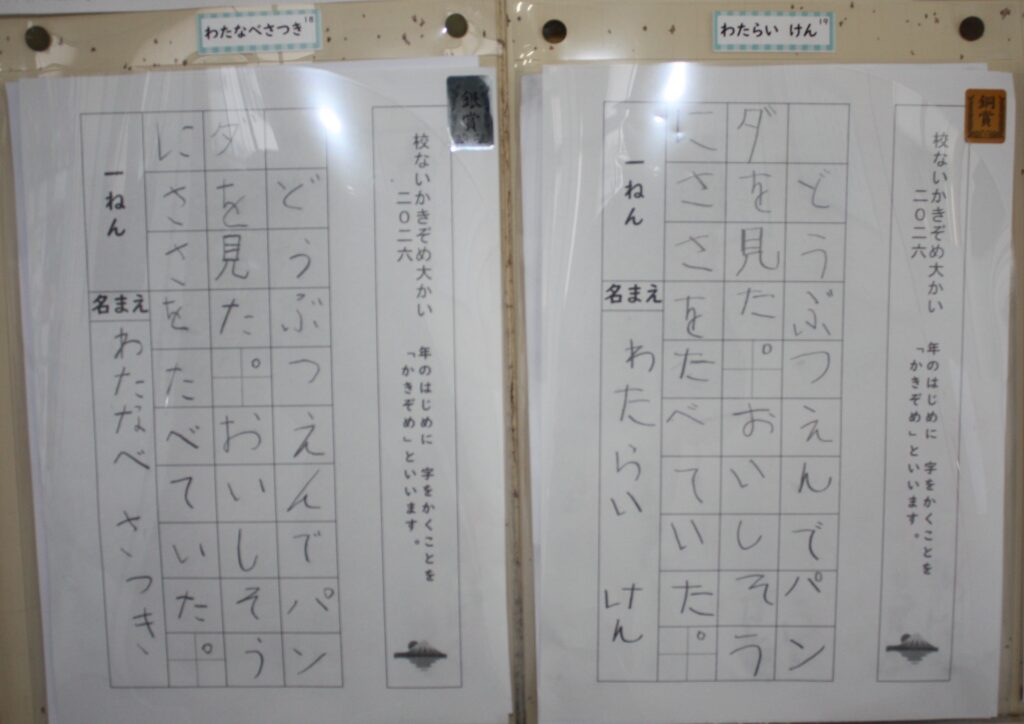 わたなべさつき 18
銀賞
校ないかきぞめ大かい
二〇二六
年のはじめに 字をかくことを
「かきぞめ」といいます。
どうぶつえんでパン
ダを見た。おいしそう
にささをたべていた。
一ねん
名まえ
わたなべ さつき
わたらい けん 19
銅賞
校ないかきぞめ大かい
二〇二六
年のはじめに 字をかくことを
「かきぞめ」といいます。
どうぶつえんでパン
ダを見た。おいしそう
にささをたべていた。
一ねん
名まえ
わたらい けん